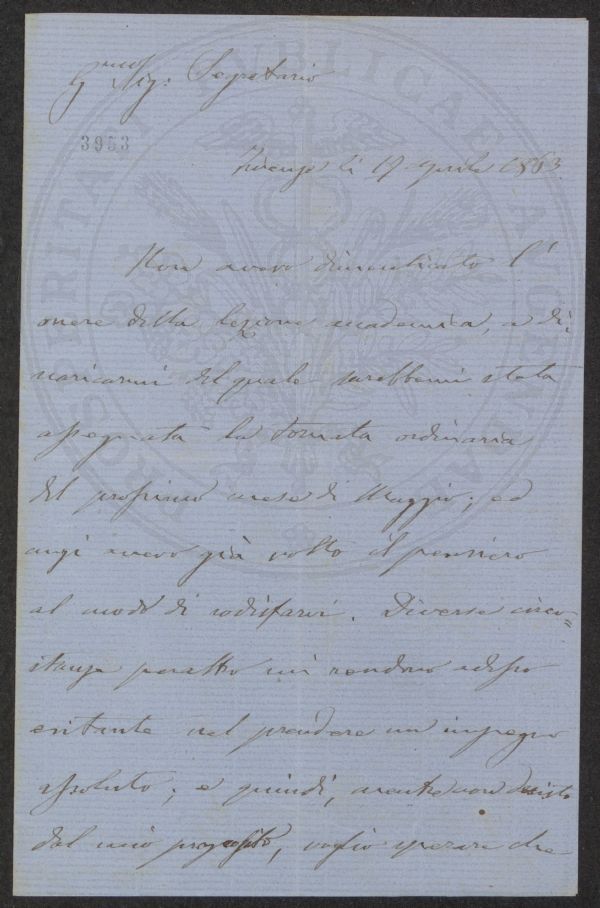 Sig: Segretario
3953
Firenze li 19 Aprile 1863
Non avevo dimenticato l'
onere della lezione accademica, a di-
scaricarmi del quale sarebbemi stata
assegnata la tornata ordinaria
del prossimo mese di Maggio; ed
anzi avevo già volto il pensiero
al modo di sodisfarvi. Diverse circo=
stanze peraltro mi rendono adesso
esitante nel prendere un impegno
assoluto; e quindi, mentre non desisto
dal mio proposito, voglio sperare che
PROSPERITATI PUBLICAE AUGENDAE